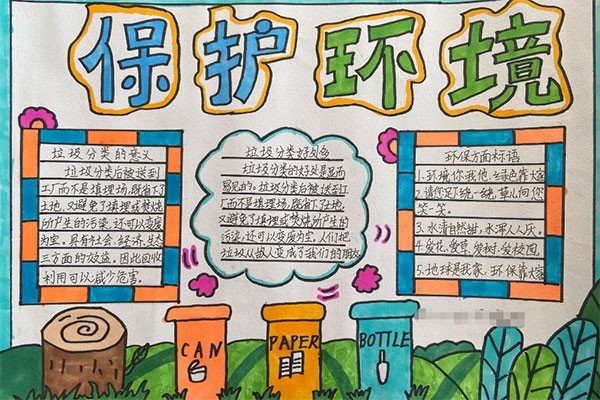 保护环境
垃圾分类的意义
垃圾分类后被送到
工厂而不是填埋场,既省下了
土地,又避免了填埋或焚烧
所产生的污染,还可以变废
为宝。具有社会、经济、生态
三方面的效益。因此回收
利用可以减少危害。
垃圾分类好处多
垃圾分类的好处是显而
易见的。垃圾分类后被送到工
厂而不是填埋场,既省下了土地,
又避免了填埋或焚烧所产生的
污染,还可以变废为宝。人们把
垃圾从敌人变成了我们的朋友
环保方面标语
1.环境你我他,绿色靠大家
2.请您足下绕一绕,草儿向您
笑一笑。
3.水清自然甜,水浑人人厌。
4.爱花,爱草,爱树,爱校园。
5.地球是我家,环保靠大家
CAN
PAPER
BOTTLE